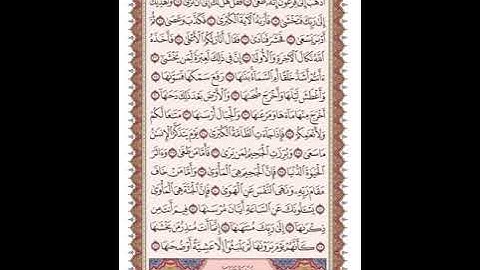 ٱذْهَبْ إِلَىٰ فِرْعَوْنَ إِنَّهُۥ طَغَىٰ فَقُلْ هَل لَّكَ إِلَىٰٓ أَن تَزَكَّىٰ وَأَهْدِيَكَ
إِلَىٰ رَبِّكَ فَتَخْشَىٰ فَأَرَىٰهُ ٱلْءَايَةَ ٱلْكُبْرَىٰ فَكَذَّبَ وَعَصَىٰ ثُمَّ
أَدْبَرَ يَسْعَىٰ فَحَشَرَ فَنَادَىٰ فَقَالَ أَنَا۠ رَبُّكُمُ ٱلْأَعْلَىٰ فَأَخَذَهُ
ٱللَّهُ نَكَالَ ٱلْءَاخِرَةِ وَٱلْأُولَىٰٓ إِنَّ فِى ذَٰلِكَ لَعِبْرَةً لِّمَن يَخْشَىٰٓ
ءَأَنتُمْ أَشَدُّ خَلْقًا أَمِ ٱلسَّمَآءُ بَنَىٰهَا رَفَعَ سَمْكَهَا فَسَوَّىٰهَا
وَأَغْطَشَ لَيْلَهَا وَأَخْرَجَ ضُحَىٰهَا وَٱلْأَرْضَ بَعْدَ ذَٰلِكَ دَحَىٰهَآ
أَخْرَجَ مِنْهَا مَآءَهَا وَمَرْعَىٰهَا وَٱلْجِبَالَ أَرْسَىٰهَا مَتَٰعًا لَّكُمْ
وَلِأَنْعَٰمِكُمْ فَإِذَا جَآءَتِ ٱلطَّآمَّةُ ٱلْكُبْرَىٰ يَوْمَ يَتَذَكَّرُ ٱلْإِنسَٰنُ
مَا سَعَىٰ وَبُرِّزَتِ ٱلْجَحِيمُ لِمَن يَرَىٰ فَأَمَّا مَن طَغَىٰ وَءَاثَرَ
ٱلْحَيَوٰةَ ٱلدُّنْيَا فَإِنَّ ٱلْجَحِيمَ هِىَ ٱلْمَأْوَىٰ وَأَمَّا مَنْ خَافَ
مَقَامَ رَبِّهِۦ وَنَهَى ٱلنَّفْسَ عَنِ ٱلْهَوَىٰ فَإِنَّ ٱلْجَنَّةَ هِىَ ٱلْمَأْوَىٰ
يَسْـَٔلُونَكَ عَنِ ٱلسَّاعَةِ أَيَّانَ مُرْسَىٰهَا فِيمَ أَنتَ مِن
ذِكْرَىٰهَآ إِلَىٰ رَبِّكَ مُنتَهَىٰهَآ إِنَّمَآ أَنتَ مُنذِرُ مَن يَخْشَىٰهَا
كَأَنَّهُمْ يَوْمَ يَرَوْنَهَا لَمْ يَلْبَثُوٓا۟ إِلَّا عَشِيَّةً أَوْ ضُحَىٰهَا